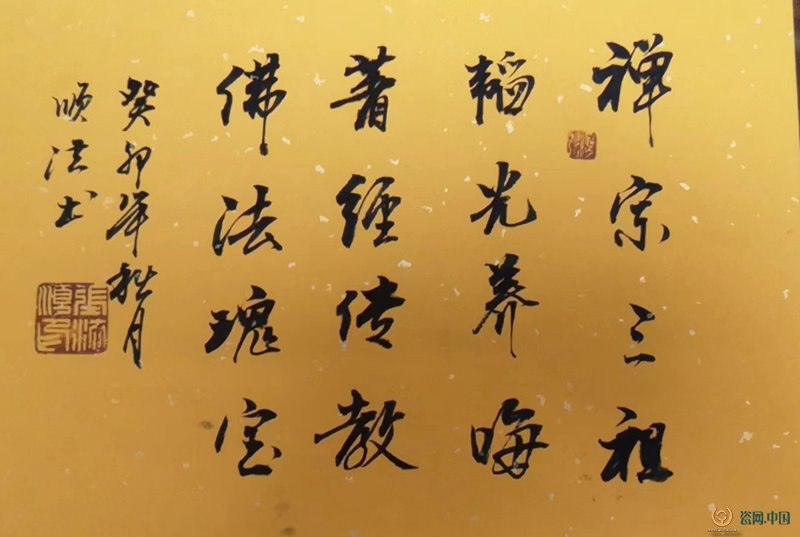 禅宗三祖
韬光养晦
著经传教
佛法瑰宝
癸卯年秋月
顺洪书
瓷网.中国